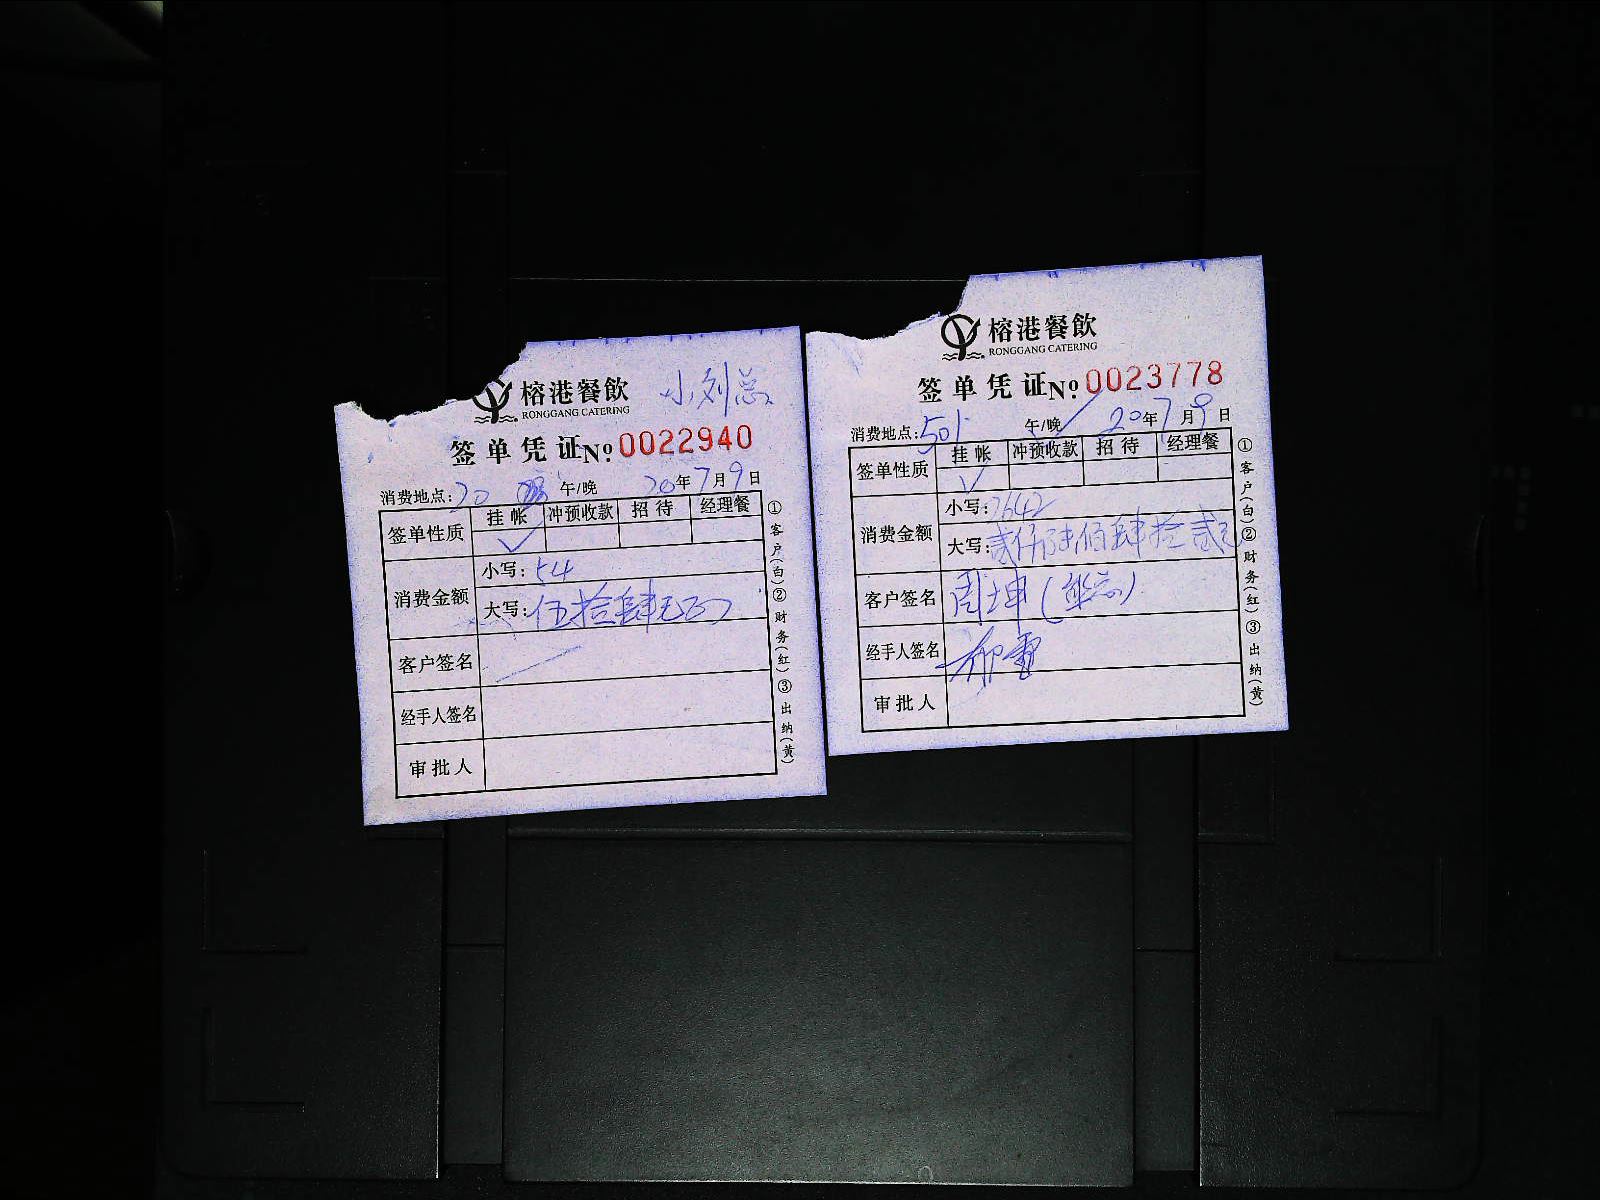 榕港餐飲
RONGGANG CATERING
小刘总
签单凭证 No. 0022940
消费地点: 20 午/晚 20年7月9日
签单性质 挂帐 冲预收款 招待 经理餐
✓
消费金额 小写: 54
大写: 伍拾肆元
客户签名
经手人签名
审批人
①客户(白)②财务(红)③出纳(黄)
榕港餐飲
RONGGANG CATERING
签单凭证 No. 0023778
消费地点: 501 午/晚 ✓ 20年7月9日
签单性质 挂帐 冲预收款 招待 经理餐
✓
消费金额 小写: 2642
大写: 贰仟陆佰肆拾贰元
客户签名 周坤(熊总)
经手人签名
审批人
①客户(白)②财务(红)③出纳(黄)